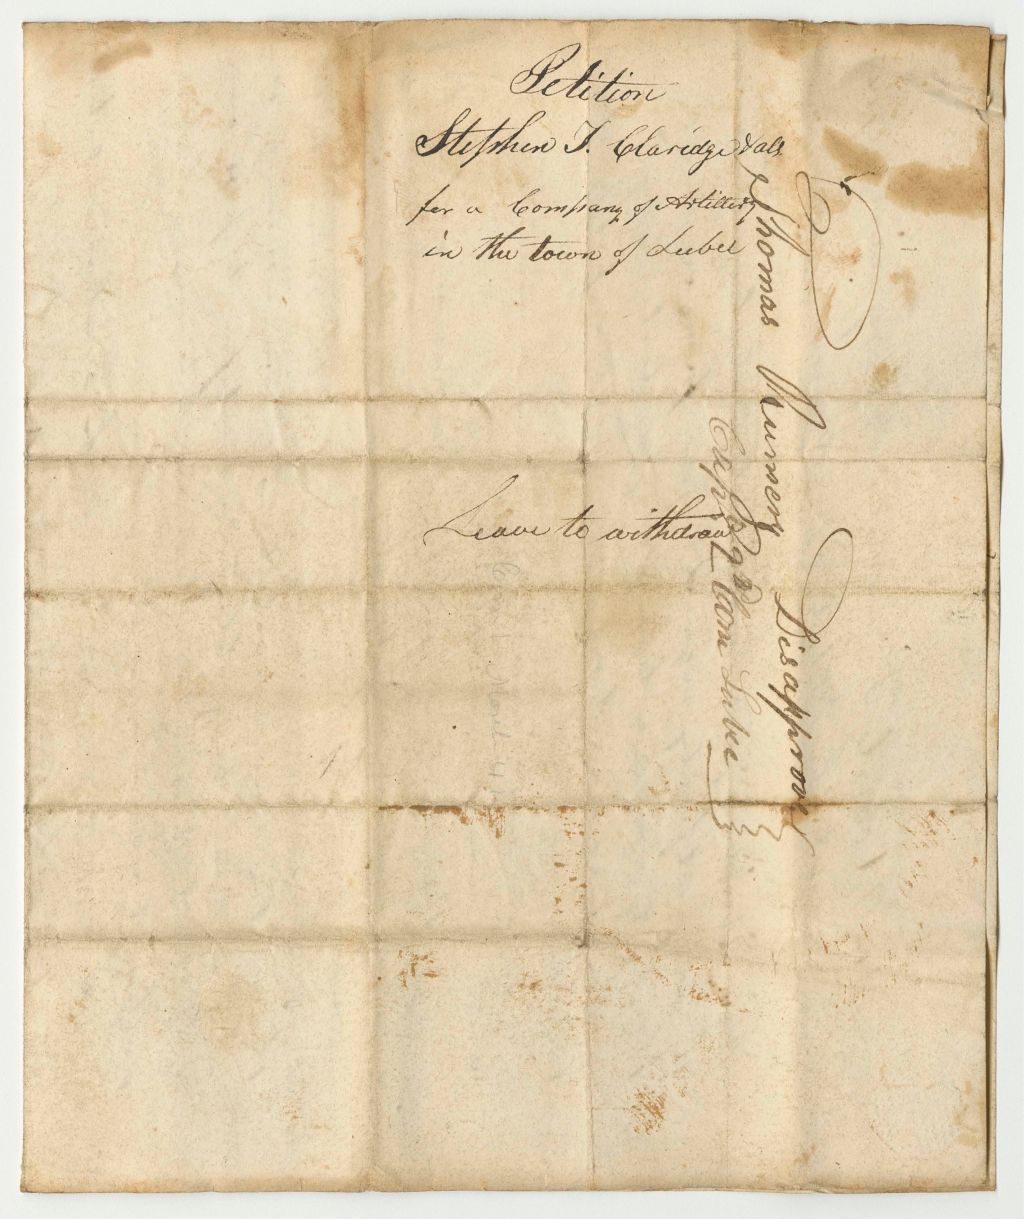 Petition
Stephen T. Claridge & als
for a Company of Artillery
in the town of Lubec
Leave to withdraw
Thomas Rumery Disapprove
Capt Com Lubec